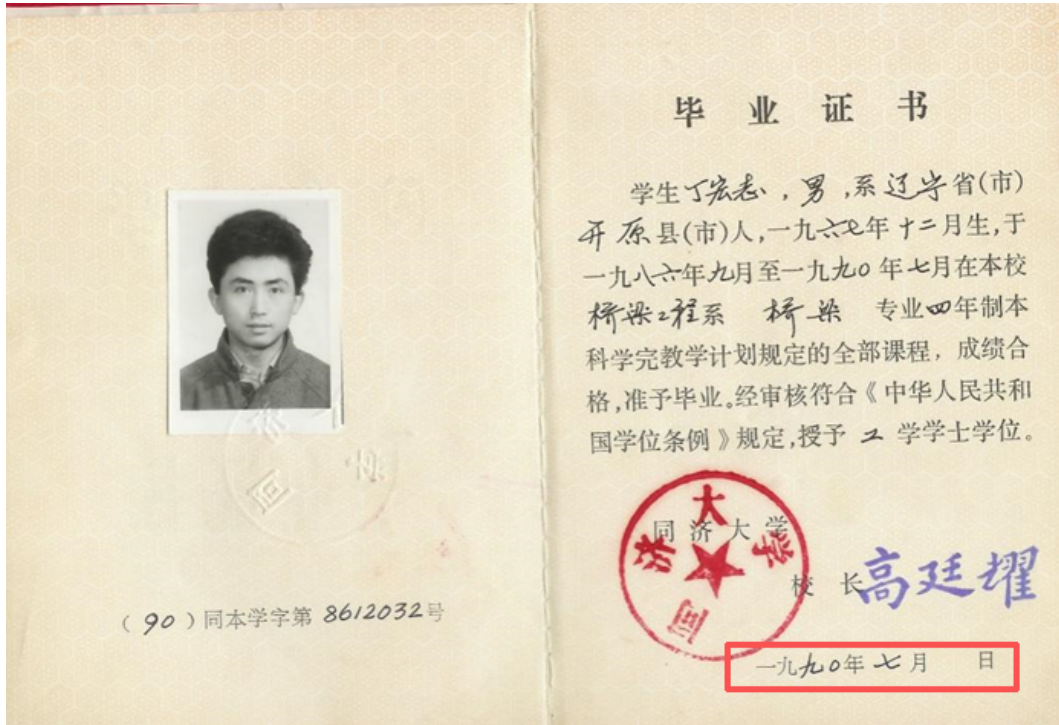 （90）同本学字第 8612032号
毕业证书
学生丁宏志，男，系辽宁省(市)
开原县(市)人，一九六七年十二月生，于
一九八六年九月至一九九〇年七月在本校
桥梁工程系 桥梁 专业四年制本
科学完教学计划规定的全部课程，成绩合
格，准予毕业。经审核符合《中华人民共和
国学位条例》规定，授予 工 学学士学位。
同济大学
同济大学
校长高廷耀
一九九〇年七月 日